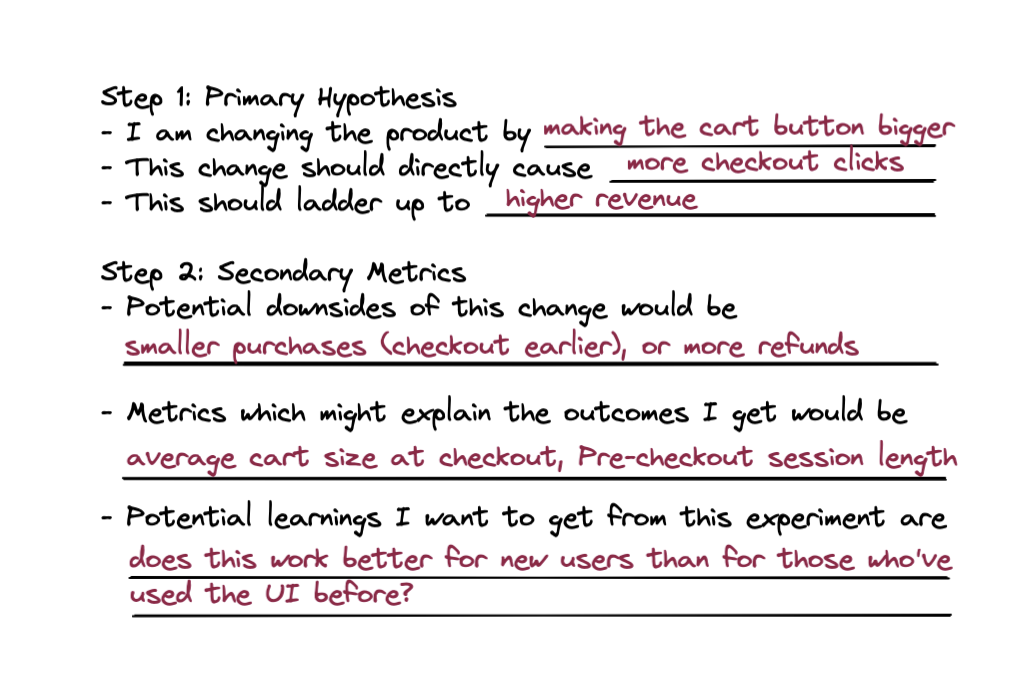 Step 1: Primary Hypothesis
- I am changing the product by making the cart button bigger
- This change should directly cause more checkout clicks
- This should ladder up to higher revenue
Step 2: Secondary Metrics
- Potential downsides of this change would be
smaller purchases (checkout earlier), or more refunds
- Metrics which might explain the outcomes I get would be
average cart size at checkout, Pre-checkout session length
- Potential learnings I want to get from this experiment are
does this work better for new users than for those who've
used the UI before?